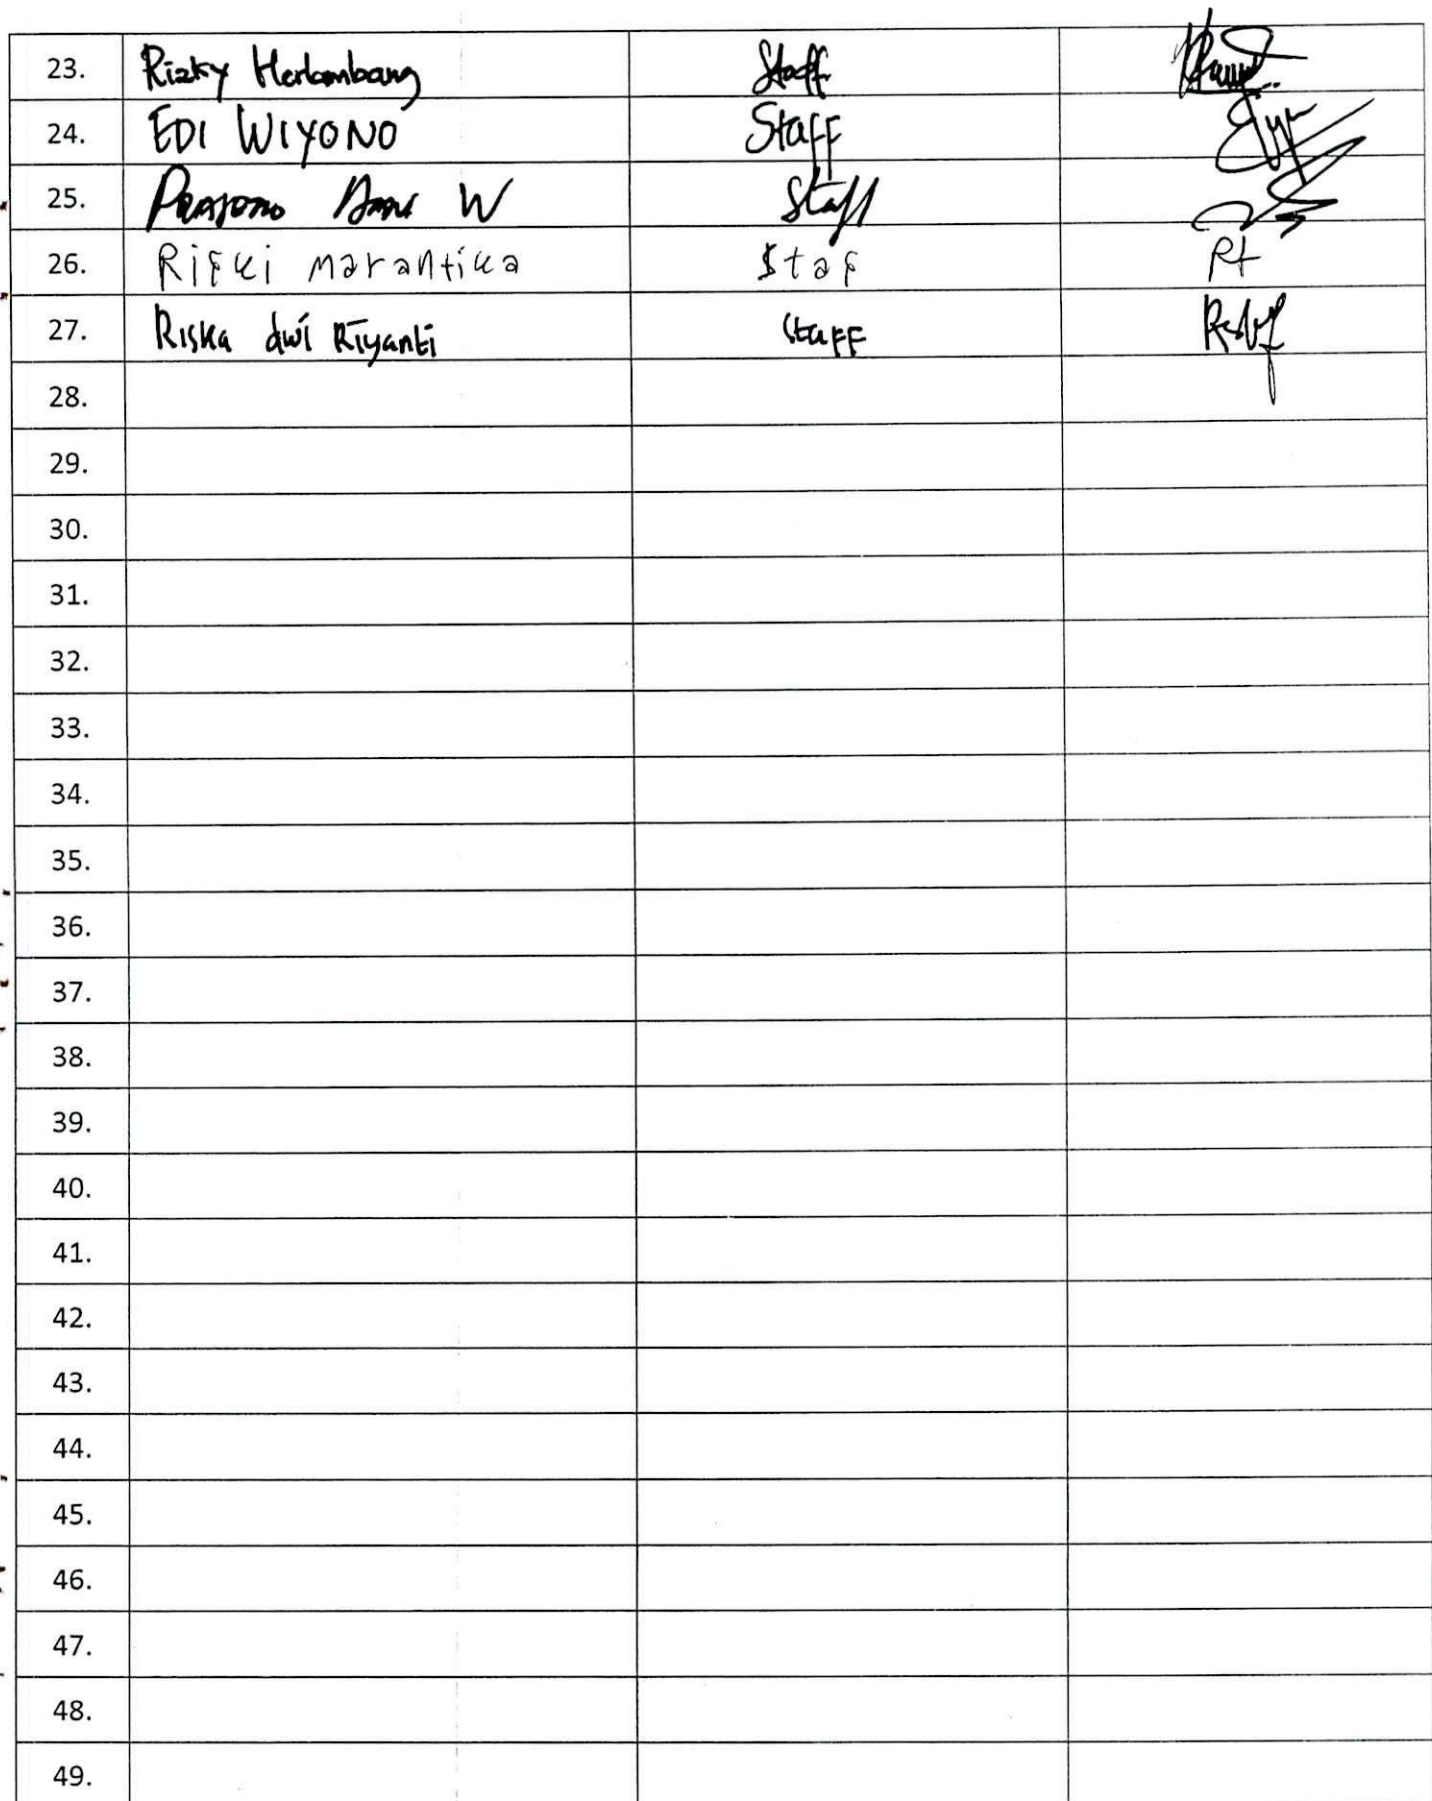 23. Rizky Herlambang Staff
24. EDI WIYONO Staff
25. W Staff
26. Rifki marantika Staf Rf
27. Riska dwi Riyanti Staff
28.
29.
30.
31.
32.
33.
34.
35.
36.
37.
38.
39.
40.
41.
42.
43.
44.
45.
46.
47.
48.
49.